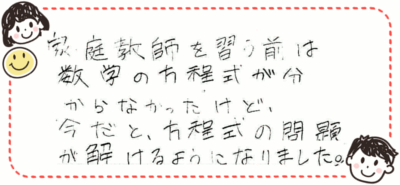 家庭教師を習う前は
数学の方程式が分
からなかったけど、
今だと、方程式の問題
が解けるようになりました。